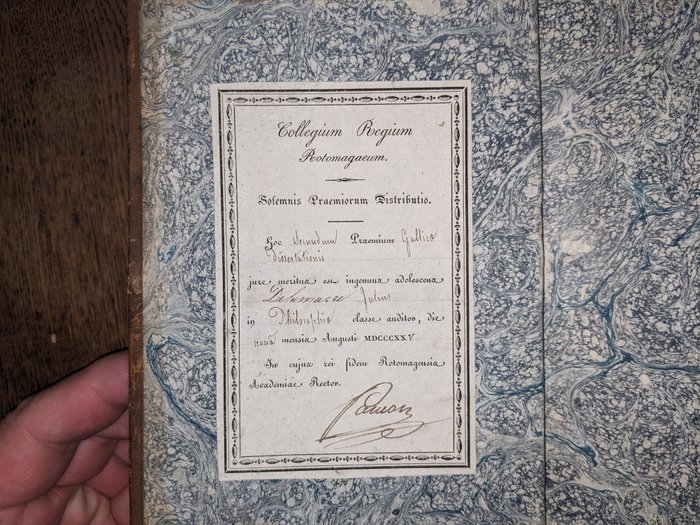 Collegium Regium
Rotomagaeum.
Solemnis Praemiorum Distributio.
Hoc secundum Praemium Gallicae
dissertationis
jure meritus est ingenuus adolescens
Delamarre Julius
in Philosophiae classe auditor, die
nonâ mensis Augusti MDCCCXXV
In cujus rei fidem Rotomagensis
Academiae Rector.